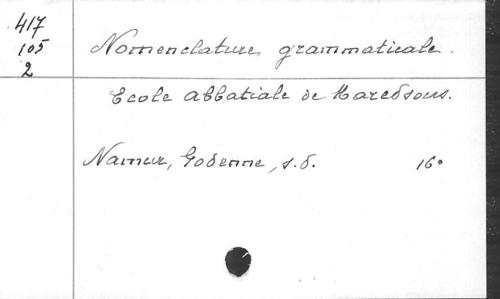 417
105
2
Nomenclature grammaticale.
Ecole abbatiale de Maredsous.
Namur, Godenne, s.d. 16°